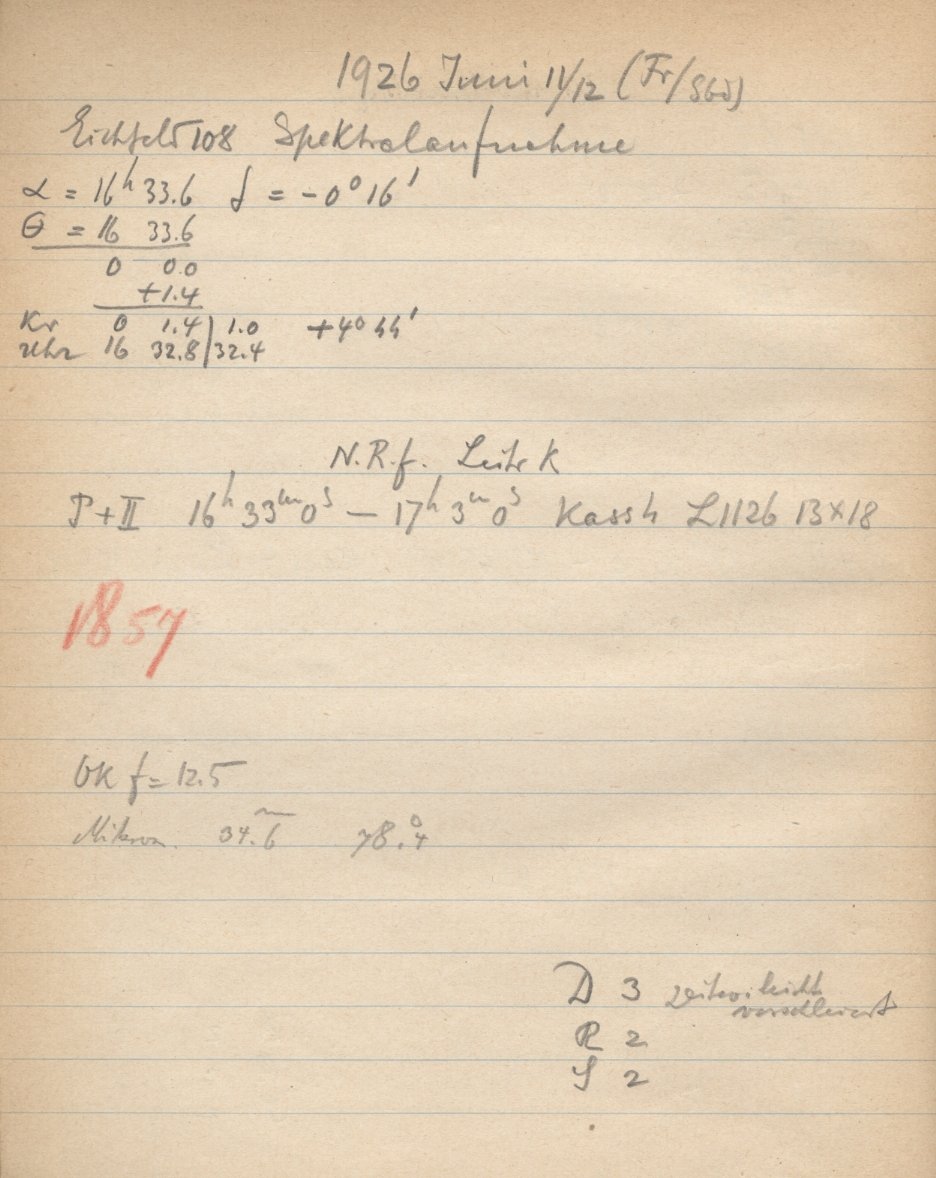 1926 Juni 11/12 (Fr/Sbd)
Eichfeld 108 Spektralaufnahme
α = 16h 33.6 δ = -0° 16'
θ = 16 33.6
0 0.0
+1.4
Kr 0 1.4 | 1.0 +4° 44'
Uhr 16 32.8 | 32.4
N.R.f. Leitr K
P+II 16h 33m 0s — 17h 3m 0s Kass 4 L1126 13×18
1857
OK f = 12.5
Mikrom. 34.6 78.°4
D 3 zeitw. leicht
verschleiert
R 2
S 2